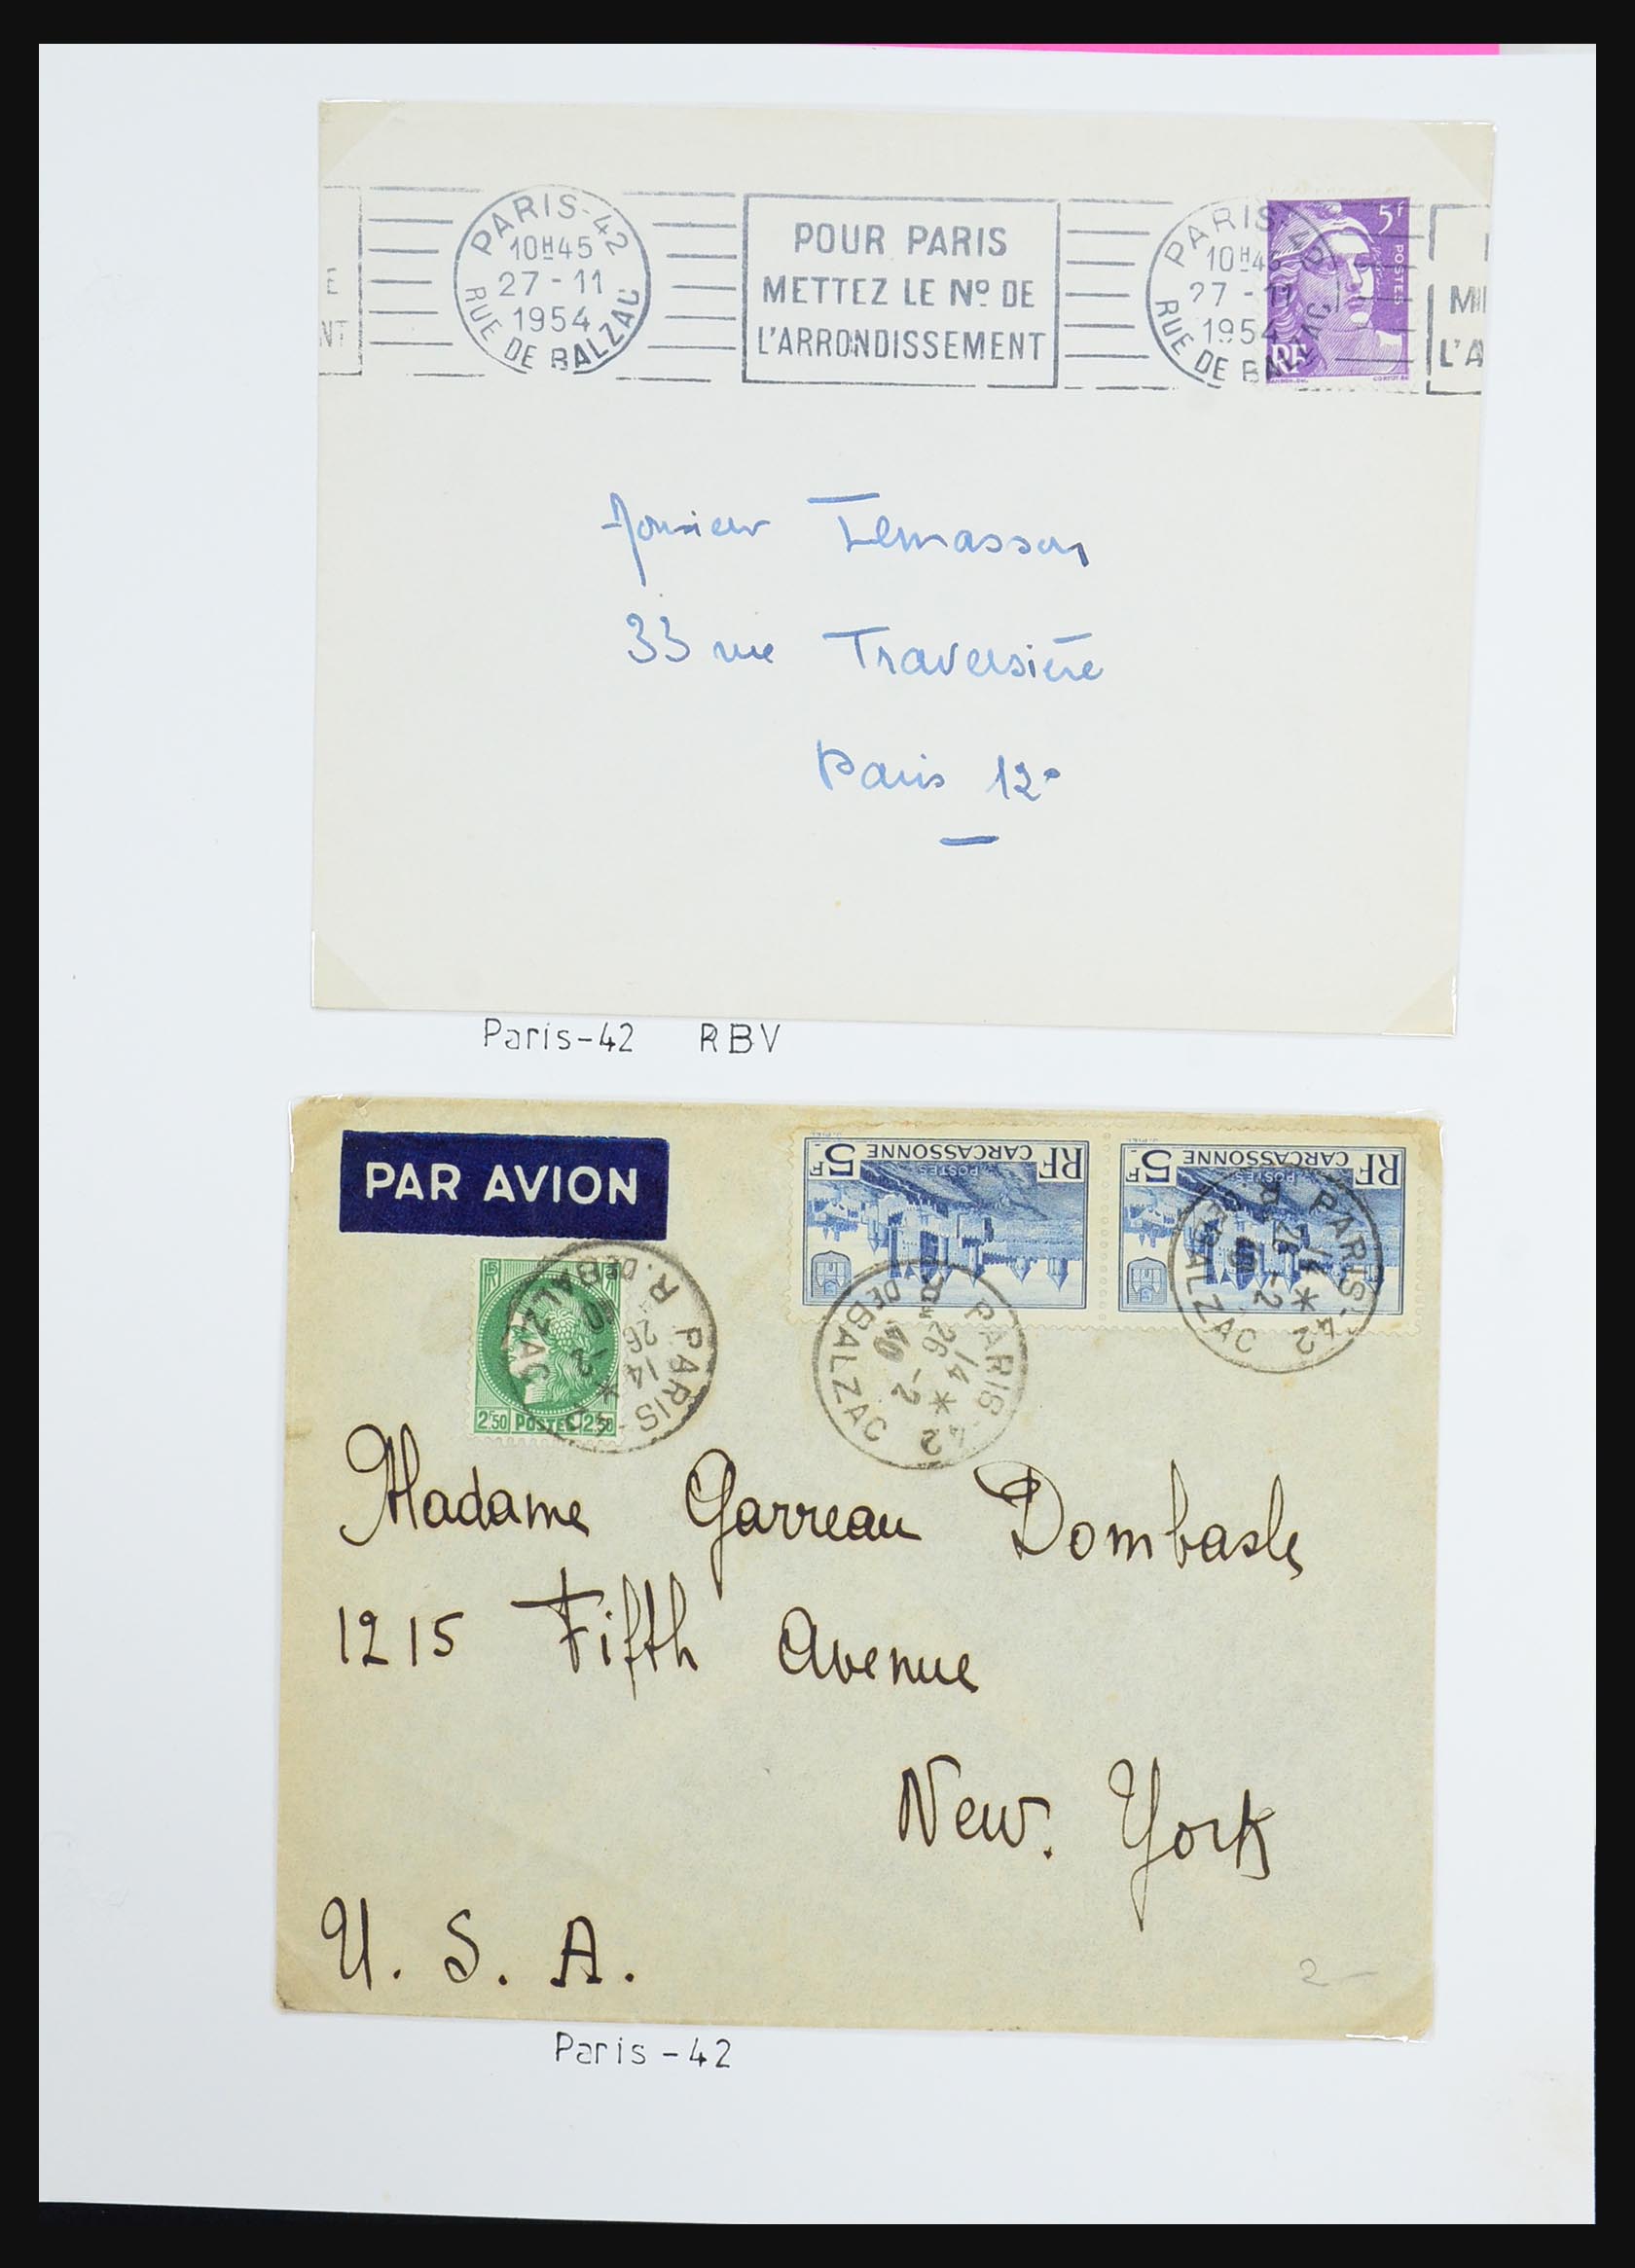 E
NT
PARIS-42
10H45
27-11
1954
RUE DE BALZAC
POUR PARIS
METTEZ LE Nº DE
L'ARRONDISSEMENT
PARIS-42
10H45
27-11
1954
RUE DE BALZAC
5F
POSTES
RF
L'A
Monsieur Lemasson
33 rue Traversière
Paris 12e
Paris-42 RBV
PAR AVION
RF CARCASSONNE 5F
POSTES
RF CARCASSONNE 5F
POSTES
2F50 POSTES 2F50
PARIS-42
R. DE BALZAC
14 26
* -2
40
PARIS-42
R. DE BALZAC
14 26
* -2
40
PARIS-42
R. DE BALZAC
14 26
* -2
40
Madame Garreau Dombasle
1215 Fifth Avenue
New. York
U. S. A.
2-
Paris-42